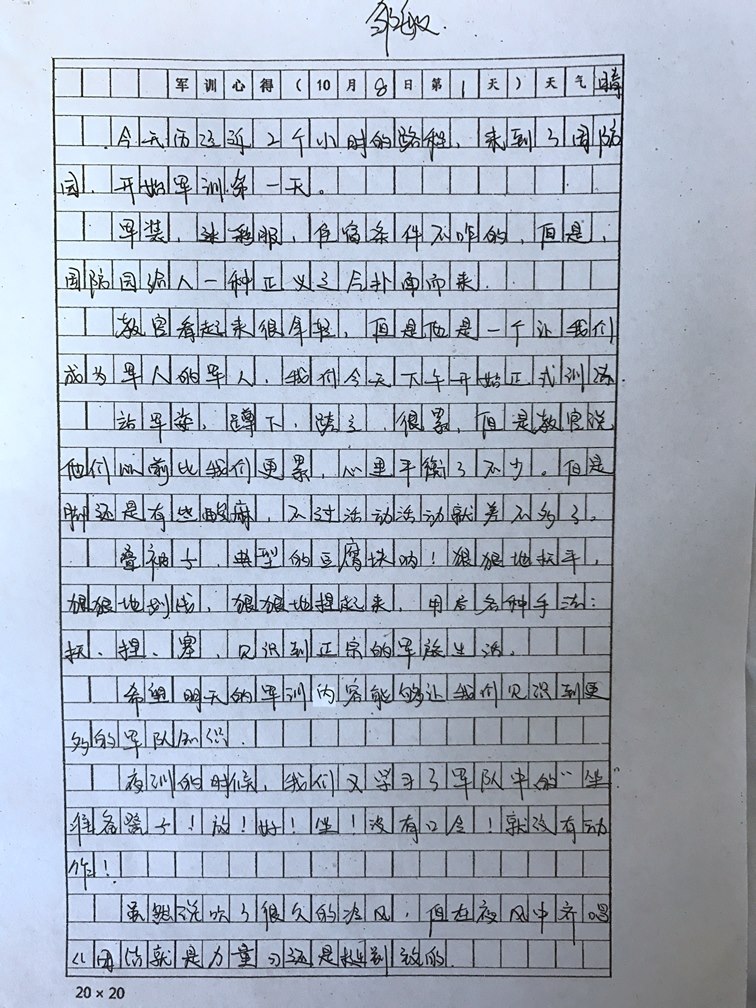 邹敏
军训心得（10月8日第1天）天气晴
今天历经近2个小时的路程，来到了国防
园，开始军训第一天。
军装，迷彩服，住宿条件不咋的，但是，
国防园给人一种正义之令扑面而来.
教官看起来很年轻，但是他是一个让我们
成为军人的军人，我们今天下午开始正式训法.
站军姿，蹲下，跨立，很累，但是教官说
他们以前比我们更累，心里平衡了不少。但是
脚还是有些酸麻，不过活动活动就差不多了。
叠被子，典型的豆腐块呐！狠狠地抚平，
狠狠地划线，狠狠地捏起来，用后各种手法：
抚、捏、塞，见识到正宗的军旅生活.
希望明天的军训内容能够让我们见识到更
多的军队知识.
夜训的时候，我们又学习了军队中的“坐”
准备凳子！放！好！坐！没有口令！就没有动
作！
虽然说吹了很久的冷风，但在夜风中齐唱
《团结就是力量》还是挺 效的.
20×20